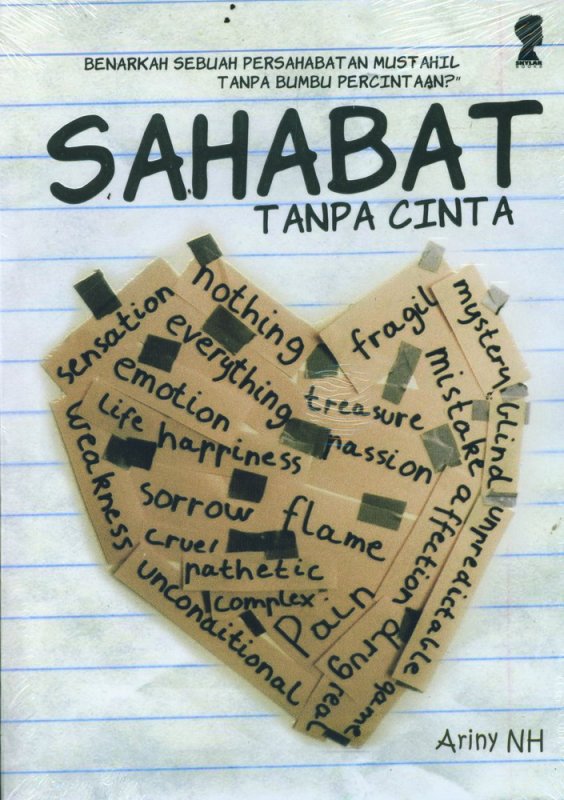 BENARKAH SEBUAH PERSAHABATAN MUSTAHIL
TANPA BUMBU PERCINTAAN?"
SKYLAR
BOOKS
SAHABAT
TANPA CINTA
nothing
sensation
everything
fragil
mystery
emotion
treasure
mistake
blind
life happiness
passion
weakness
sorrow
flame
affection
unpredictable
cruel
pathetic
complex
unconditional
pain
drug
real
game
Ariny NH